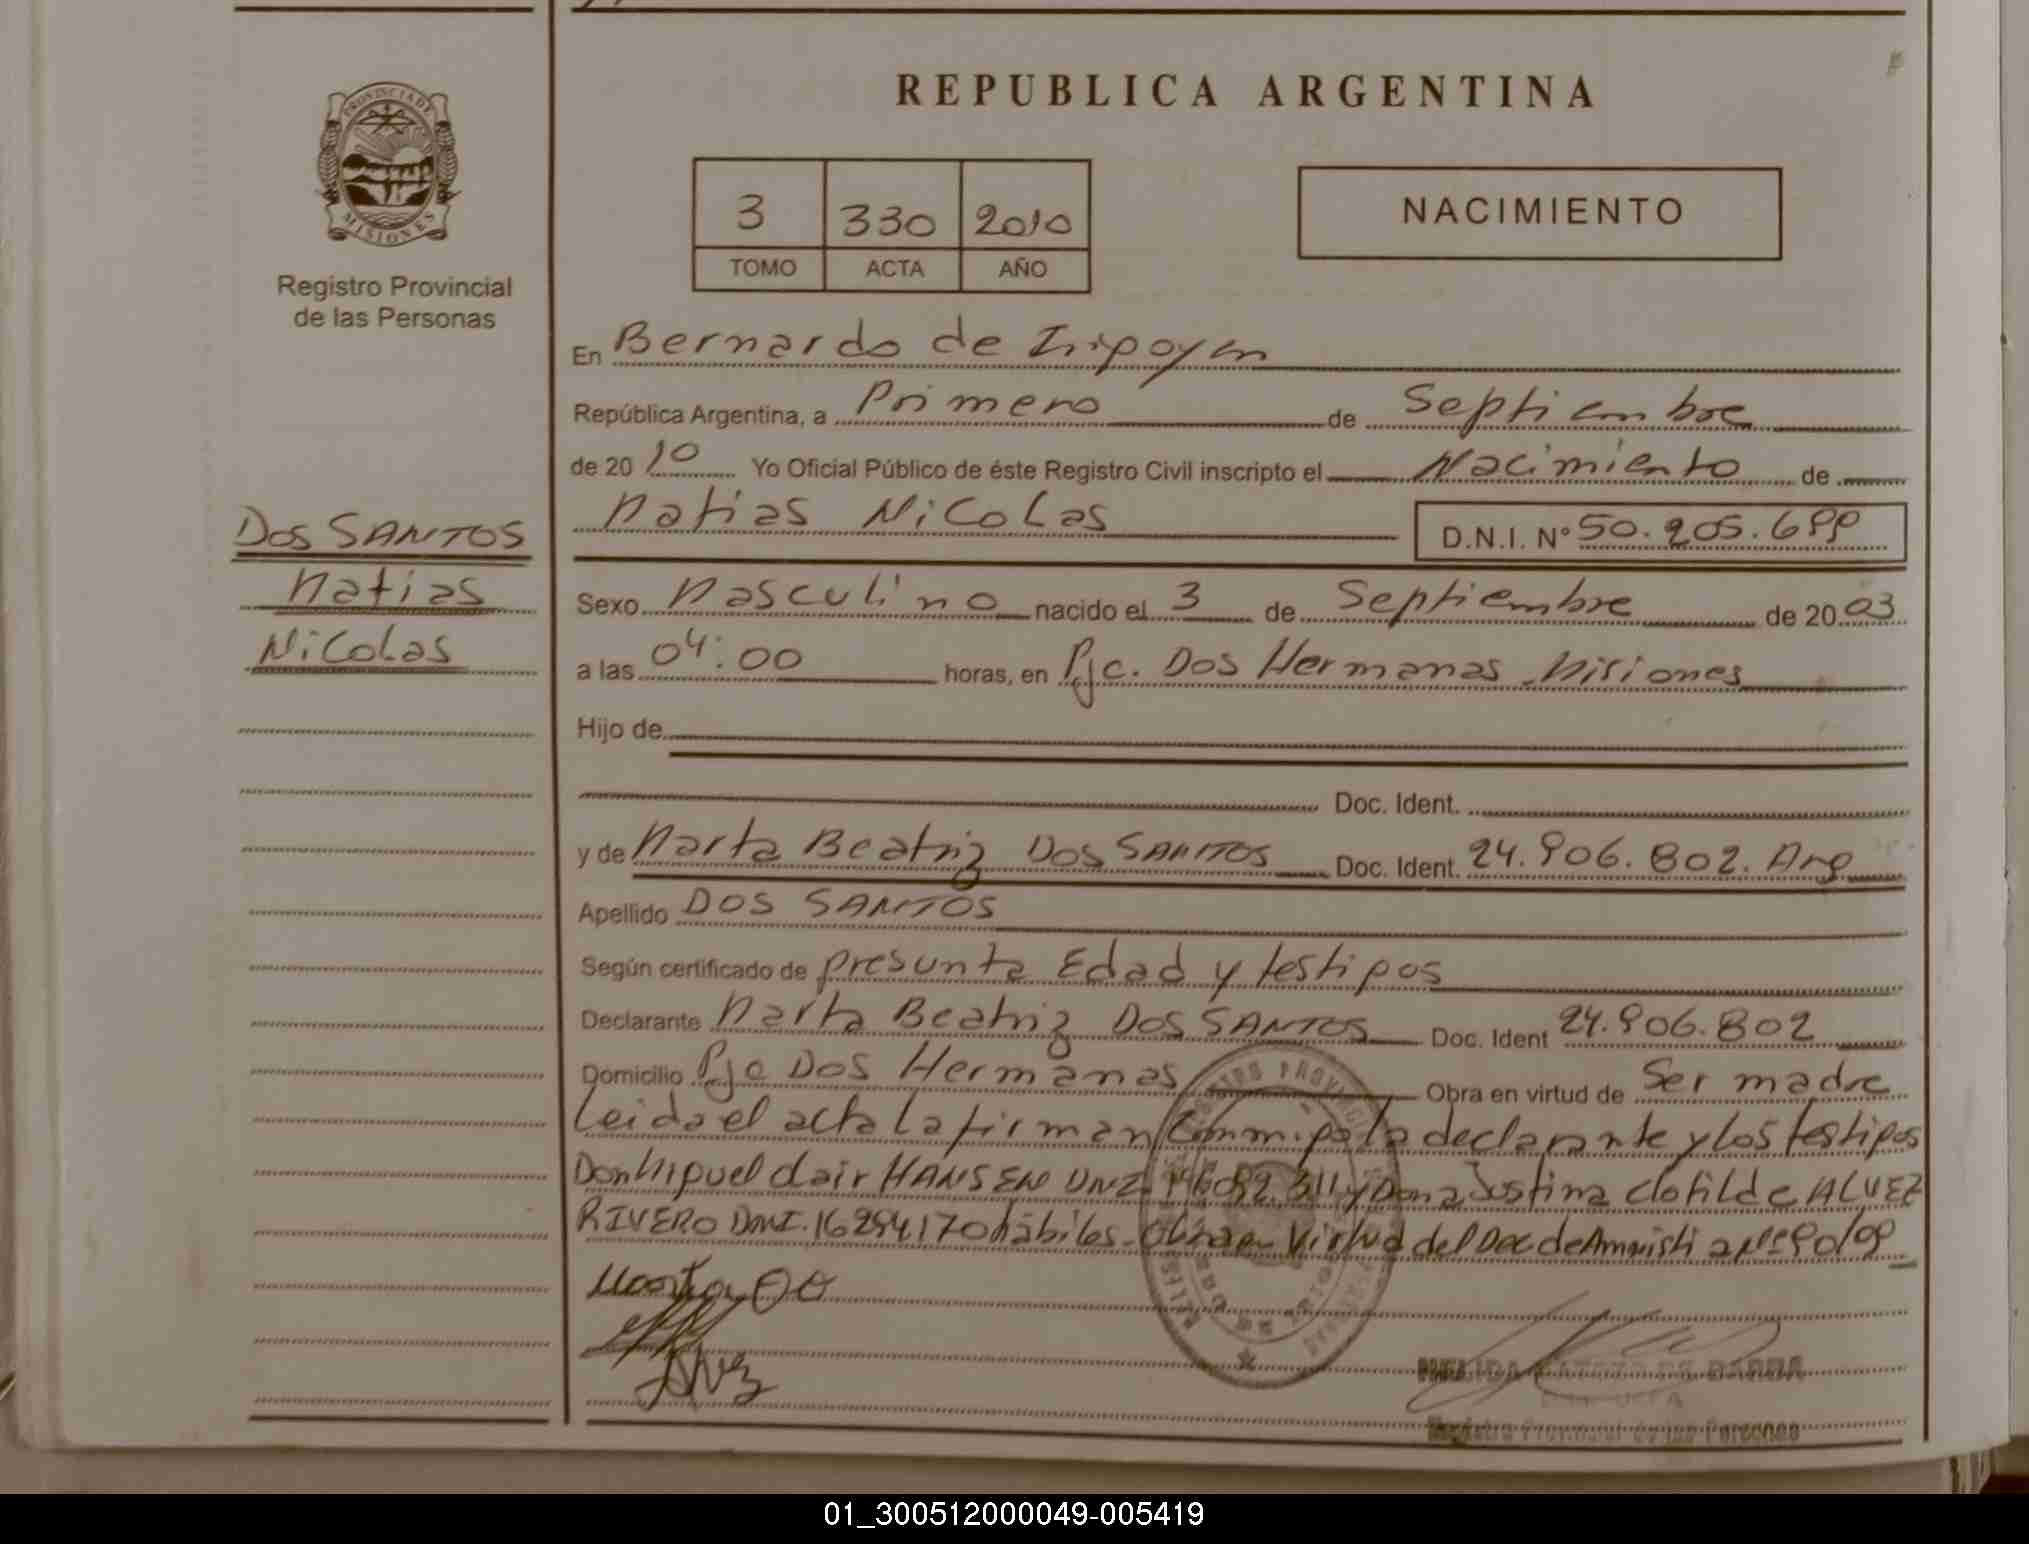 REPUBLICA ARGENTINA
PROVINCIA DE
MISIONES
Registro Provincial
de las Personas
3 330 2010
TOMO ACTA AÑO
NACIMIENTO
En Bernardo de Irigoyen
República Argentina, a Primero de Septiembre
de 20 10 Yo Oficial Público de éste Registro Civil inscripto el Nacimiento de
Matias Nicolas D.N.I. N° 50.205.699
DOS SANTOS
Matias
Nicolas
Sexo Masculino nacido el 3 de Septiembre de 20 03
a las 04:00 horas, en Pje. Dos Hermanas Misiones
Hijo de
Doc. Ident.
y de Marta Beatriz DOS SANTOS Doc. Ident. 24.906.802. Arg
Apellido DOS SANTOS
Según certificado de presunta Edad y testigos
Declarante Marta Beatriz DOS SANTOS Doc. Ident 24.906.802
Domicilio Pje Dos Hermanas Obra en virtud de Ser madre
Leida el acta la firman Conmigo la declarante y los testigos
Don Miguel clair HANSEN DNI. 311 y Dona Justina Clotilde ALVEZ
RIVERO DNI. 16294170 hábiles. Obra en Virtud del Dec de Amnistia Nº 90/09
Marta
Alvez
NELIDA DE BARRA
Registro Provincial de las Personas
01_300512000049-005419